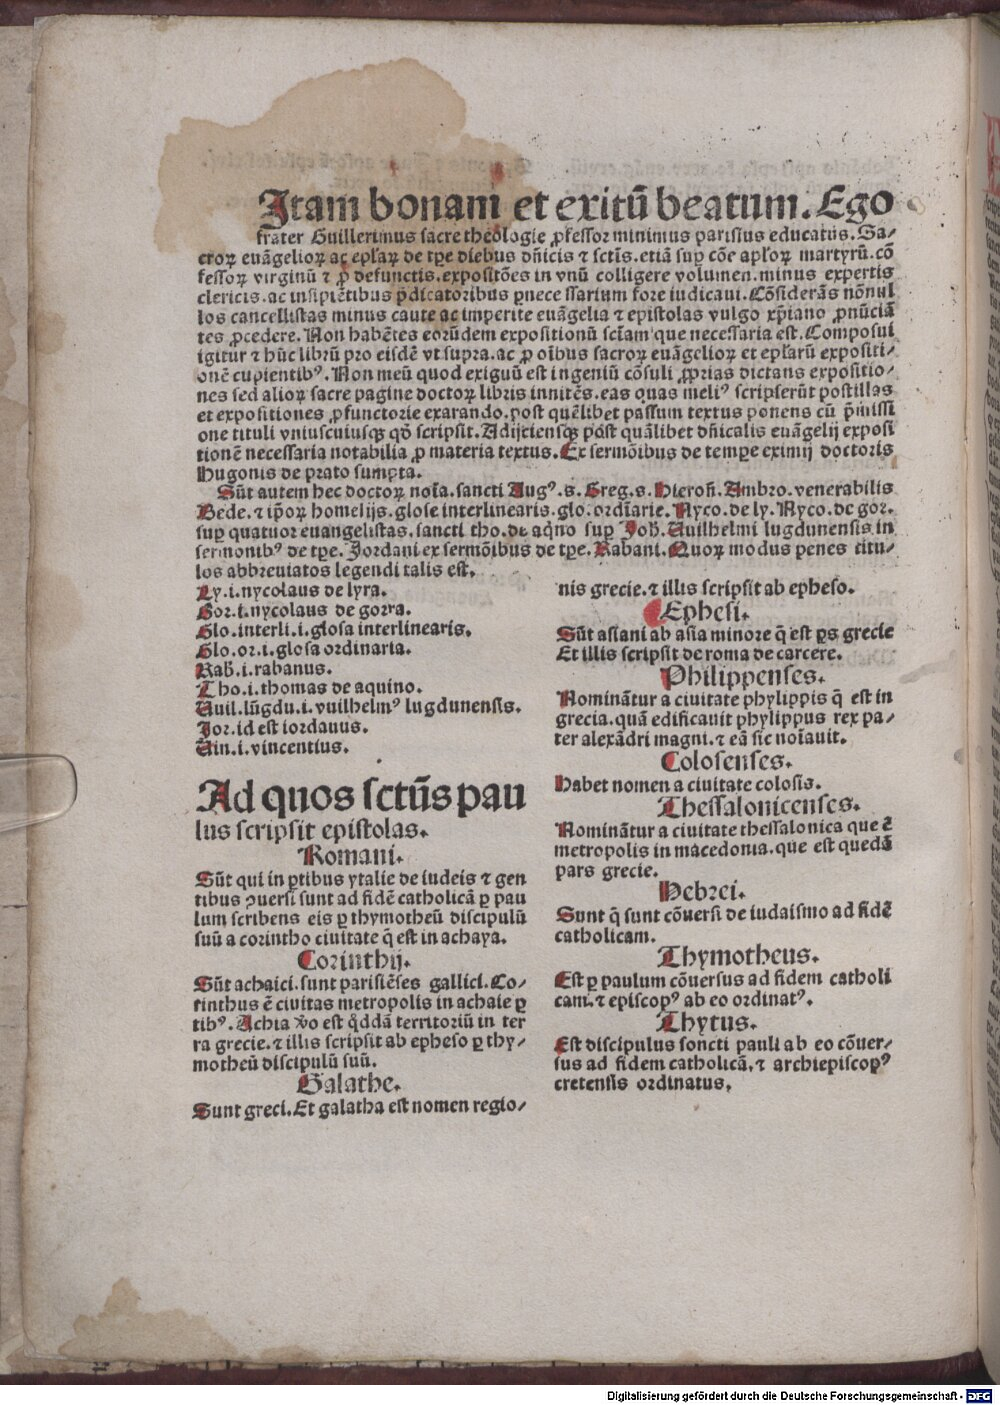 Itam bonam et exitū beatum. Ego
frater Guillerimus sacre theologie ꝓfessor minimus parisius educatus. Sa⸗
croꝝ euāgelioꝝ ac ep̄laꝝ de tp̄e diebus dn̄icis ⁊ sctīs. etiā suꝑ cōe apl̄oꝝ martyrū. cō
fessoꝝ virginū ⁊ ꝓ defunctis. expositōes in vnū colligere volumen. minus expertis
clericis. ac insipiētibus p̄dicatoribus ꝑnece ssarium fore iudicaui. Cōsiderās nōnul
los cancellistas minus caute ac imperite euāgelia ⁊ epistolas vulgo xp̄iano ꝓnūciā
tes ꝓcedere. Non habētes eorūdem expositionū sciam̄ que necessaria est. Composui
igitur ⁊ hūc librū pro eisdē vt supra. ac ꝓ oībus sacroꝝ euāgelioꝝ et epl̄arū expositi⸗
onē cupientibꝰ. Non meū quod exiguū est ingeniū cōsuli ꝓprias dictans expositio⸗
nes sed alioꝝ sacre pagine doctoꝝ libris innitēs. eas quas meliꝰ scripserūt postillas
et expositiones ꝓfunctorie exarando. post quēlibet passum textus ponens cū p̄missi
one tituli vniuscuiusqꝫ qd̄ scripsit. Adijciensqꝫ post quālibet dn̄icalis euāgelij exposi
tionē necessaria notabilia ꝓ materia textus. Ex sermōibus de tempe eximij doctoris
Hugonis de prato sumpta.
Sūt autem hec doctoꝝ noīa. sancti Augꝰ. s. Greg. s. Hieron̄. Ambro. venerabilis
Bede. ⁊ ip̄oꝝ homelijs. glose interlinearis. glo. ordīarie. Nyco. de ly. Nyco. de gor.
suꝑ quatuor euangelistas. sancti tho. de aq̄no suꝑ Joh̄. Vuilhelmi lugdunensis in
sermonibꝰ de tp̄e. Jordani ex sermōibus de tp̄e. Rabani. Quoꝝ modus penes titu⸗
los abbreuiatos legendi talis est.
Ly. i. nycolaus de lyra.
Gor. i. nycolaus de gorra.
Glo. interli. i. glosa interlinearis.
Glo. or. i. glosa ordinaria.
Rab̄. i. rabanus.
Tho. i. thomas de aquino.
Vuil. lūgdu. i. vuilhelmꝰ lugdunensis.
Jor. id est iordauus.
Vin. i. vincentius.
Ad quos sctūs pau
lus scripsit epistolas.
Romani.
Sūt qui in ꝑtibus ytalie de iudeis ⁊ gen
tibus ꝯuersi sunt ad fidē catholicā ꝑ pau
lum scribens eis ꝑ thymotheū discipulū
suū a corintho ciuitate q̄ est in achaya.
Corinthij.
Sūt achaici. sunt parisiēses gallici. Co⸗
rinthus ē ciuitas metropolis in achaie ꝑ
tibꝰ. Achia v̄o est q̄ddā territoriū in ter
ra grecie. ⁊ illis scripsit ab epheso ꝑ thy⸗
motheū discipulū suū.
Galathe.
Sunt greci. Et galatha est nomen regio⸗
nis grecie. ⁊ illis scripsit ab epheso.
Ephesi.
Sūt asiani ab asia minore q̄ est ꝑs grecie
Et illis scripsit de roma de carcere.
Philippenses.
Nominātur a ciuitate phylippis q̄ est in
grecia. quā edificauit phylippus rex pa⸗
ter alexādri magni. ⁊ eā sic noīauit.
Colosenses.
Habet nomen a ciuitate colosis.
Thessalonicenses.
Nominātur a ciuitate thessalonica que ē
metropolis in macedonia. que est quedā
pars grecie.
Hebrei.
Sunt q̄ sunt cōuersi de iudaismo ad fidē
catholicam.
Thymotheus.
Est ꝑ paulum cōuersus ad fidem catholi
cam. ⁊ episcopꝰ ab eo ordinatꝰ.
Thytus.
Est discipulus soncti pauli ab eo cōuer⸗
sus ad fidem catholicā. ⁊ archiepiscopꝰ
cretensis ordinatus.
Digitalisierung gefördert durch die Deutsche Forschungsgemeinschaft - DFG